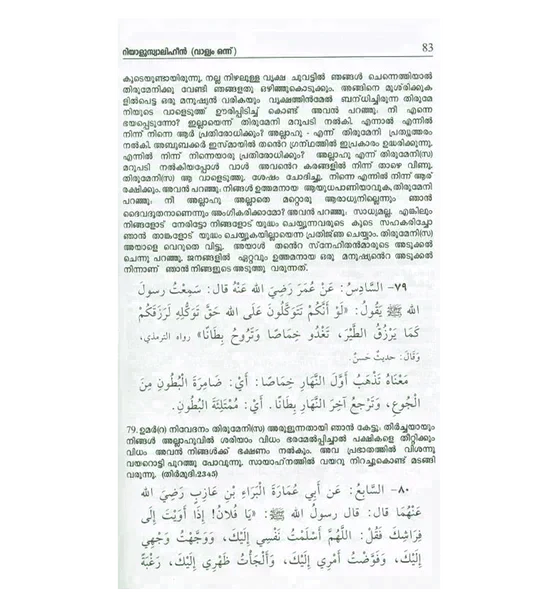 റിയാളുസ്സ്വാലിഹീൻ (വാള്യം ഒന്ന്) 83
കൂടെയുണ്ടായിരുന്നു. നല്ല നിഴലുള്ള വൃക്ഷ ചുവട്ടിൽ ഞങ്ങൾ ചെന്നെത്തിയാൽ
തിരുമേനിക്കു വേണ്ടി ഞങ്ങളതു ഒഴിഞ്ഞുകൊടുക്കും. അങ്ങിനെ മുശ്‌രിക്കുക
ളിൽപെട്ട ഒരു മനുഷ്യൻ വരികയും വൃക്ഷത്തിൻമേൽ ബന്ധിച്ചിരുന്ന തിരുമേ
നിയുടെ വാളെടുത്ത് ഊരിപ്പിടിച്ച് കൊണ്ട് അവൻ പറഞ്ഞു. നീ എന്നെ
ഭയപ്പെടുന്നോ? ഇല്ലായെന്ന് തിരുമേനി മറുപടി നൽകി. എന്നാൽ എന്നിൽ
നിന്ന് നിന്നെ ആർ പ്രതിരോധിക്കും? അല്ലാഹു - എന്ന് തിരുമേനി പ്രത്യുത്തരം
നൽകി. അബൂബക്കർ ഇസ്മായിൽ തൻെറ ഗ്രന്ഥത്തിൽ ഇപ്രകാരം ഉദ്ധരിക്കുന്നു.
എന്നിൽ നിന്ന് നിന്നെയാരു പ്രതിരോധിക്കും? അല്ലാഹു എന്ന് തിരുമേനി(സ)
മറുപടി നൽകിയപ്പോൾ വാൾ അവൻെറ കരങ്ങളിൽ നിന്ന് താഴെ വീണു.
തിരുമേനി(സ) ആ വാളെടുത്തു. ശേഷം ചോദിച്ചു. നിന്നെ എന്നിൽ നിന്ന് ആര്
രക്ഷിക്കും. അവൻ പറഞ്ഞു: നിങ്ങൾ ഉത്തമനായ ആയുധപാണിയാവുക, തിരുമേനി
പറഞ്ഞു; നീ അല്ലാഹു അല്ലാതെ മറ്റൊരു ആരാധ്യനില്ലെന്നും ഞാൻ
ദൈവദൂതനാണെന്നും അംഗീകരിക്കാമോ? അവൻ പറഞ്ഞു; സാധ്യമല്ല. എങ്കിലും
നിങ്ങളോട് നേരിട്ടോ നിങ്ങളോട് യുദ്ധം ചെയ്യുന്നവരുടെ കൂടെ സഹകരിച്ചോ
ഞാൻ താങ്കളോട് യുദ്ധം ചെയ്യുകയില്ലായെന്ന പ്രതിജ്ഞ ചെയ്യാം. തിരുമേനി(സ)
അയാളെ വെറുതെ വിട്ടു. അയാൾ തൻെറ സ്നേഹിതൻമാരുടെ അടുക്കൽ
ചെന്നു പറഞ്ഞു. ജനങ്ങളിൽ ഏറ്റവും ഉത്തമനായ ഒരു മനുഷ്യൻെറ അടുക്കൽ
നിന്നാണ് ഞാൻ നിങ്ങളുടെ അടുത്തു വരുന്നത്.
٧٩- السَّادِسُ: عَنْ عُمَرَ رَضِيَ الله عَنْهُ قال: سَمِعْتُ رسولَ
الله ﷺ يَقُولُ: «لَوْ أَنَّكُمْ تَتَوَكَّلُونَ عَلَى الله حَقَّ تَوَكُّلِهِ لَرَزَقَكُمْ
كَمَا يَرْزُقُ الطَّيْرَ، تَغْدُو خِمَاصًا وَتَرُوحُ بِطَانًا» رواه الترمذي،
وَقَالَ: حديثٌ حَسَنٌ.
مَعْنَاهُ تَذْهَبُ أَوَّلَ النَّهَارِ خِمَاصًا: أَيْ: ضَامِرَةَ الْبُطُونِ مِنَ
الْجُوعِ، وَتَرْجِعُ آخِرَ النَّهَارِ بِطَانًا. أَيْ: مُمْتَلِئَةَ الْبُطُونِ.
79. ഉമർ(റ) നിവേദനം തിരുമേനി(സ) അരുളുന്നതായി ഞാൻ കേട്ടു; തീർച്ചയായും
നിങ്ങൾ അല്ലാഹുവിൽ ശരിയാം വിധം ഭരമേൽപ്പിച്ചാൽ പക്ഷികളെ തീറ്റിക്കും
വിധം അവൻ നിങ്ങൾക്ക് ഭക്ഷണം നൽകും. അവ പ്രഭാതത്തിൽ വിശന്നു
വയറൊട്ടി പുറത്തു പോവുന്നു. സായാഹ്നത്തിൽ വയറു നിറച്ചുകൊണ്ട് മടങ്ങി
വരുന്നു. (തിർമുദി:2345)
٨٠- السَّابِعُ: عَن أَبِي عُمَارَةَ الْبَرَاءِ بْنِ عَازِبٍ رَضِيَ الله
عَنْهُمَا قال: قال رسولُ الله ﷺ: «يَا فُلَانُ! إِذَا أَوَيْتَ إِلَى
فِرَاشِكَ فَقُلْ: اللَّهُمَّ أَسْلَمْتُ نَفْسِي إِلَيْكَ، وَوَجَّهْتُ وَجْهِي
إِلَيْكَ، وَفَوَّضْتُ أَمْرِي إِلَيْكَ، وَأَلْجَأْتُ ظَهْرِي إِلَيْكَ، رَغْبَةً